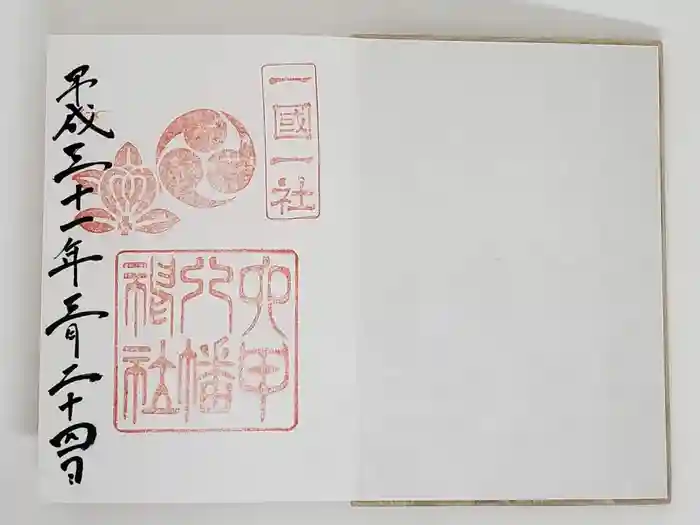 一國一社
六甲
八幡
神社
平成三十一年三月二十四日